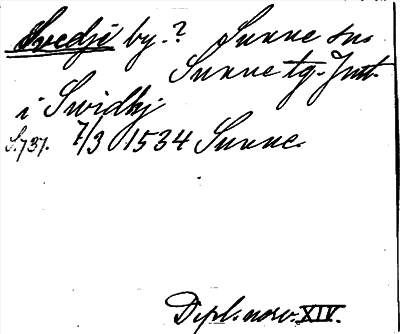 Svedje by.? Sunne sn.
Sunne tg. Jmt.
i Swidhj
S.737. 7/3 1534 Sunne.
Dipl. norv. XIV.